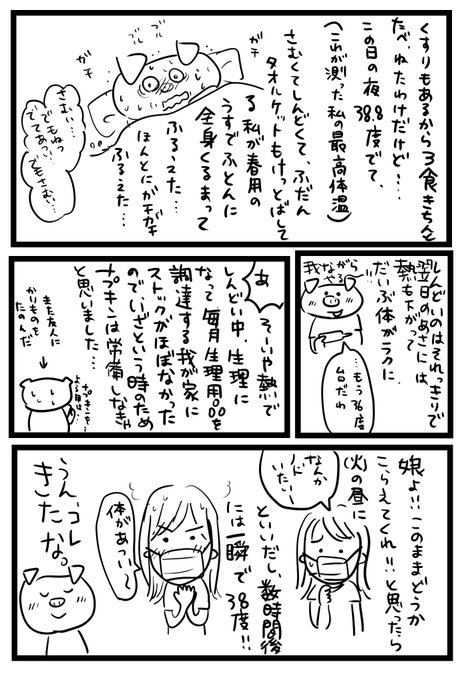 くすりもあるから3食きちんと
たべ、ねたわけだけど…、
この日の夜38.8度でて、
(これが測った私の最高体温)
さむくてしんどくて、ふだん
タオルケットもけっとばして
る私が春用の
うすでふとんに
全身くるまって
ふるえた…
ほんとにガチガチ
ふるえた…
ガチ
ガチ
さむい…
でもねっ
でてあっ…
でもさむ…
しんどいのはそれっきりで
翌日のあさには、
熱も下がって
だいぶ体がラクに
我ながら
やるな
…もう36度
台だわ
あ
そーいや熱で
しんどい中、生理に
なって毎月生理用品を
調達する我が家に
ストックがほぼなかった
のでいざという時のため
ナプキンは常備しなきゃ
と思いました…
また友人に
かりものを
たのんだ
ナプキンを…
よる用は…
娘よ!!このままどうか
こらえてくれ!!と思ったら
火の昼に
なんか
ノド
いたい
といいだし、数時間後
には一瞬で38度!!
体があっつい
うん、コレ
きたなっ